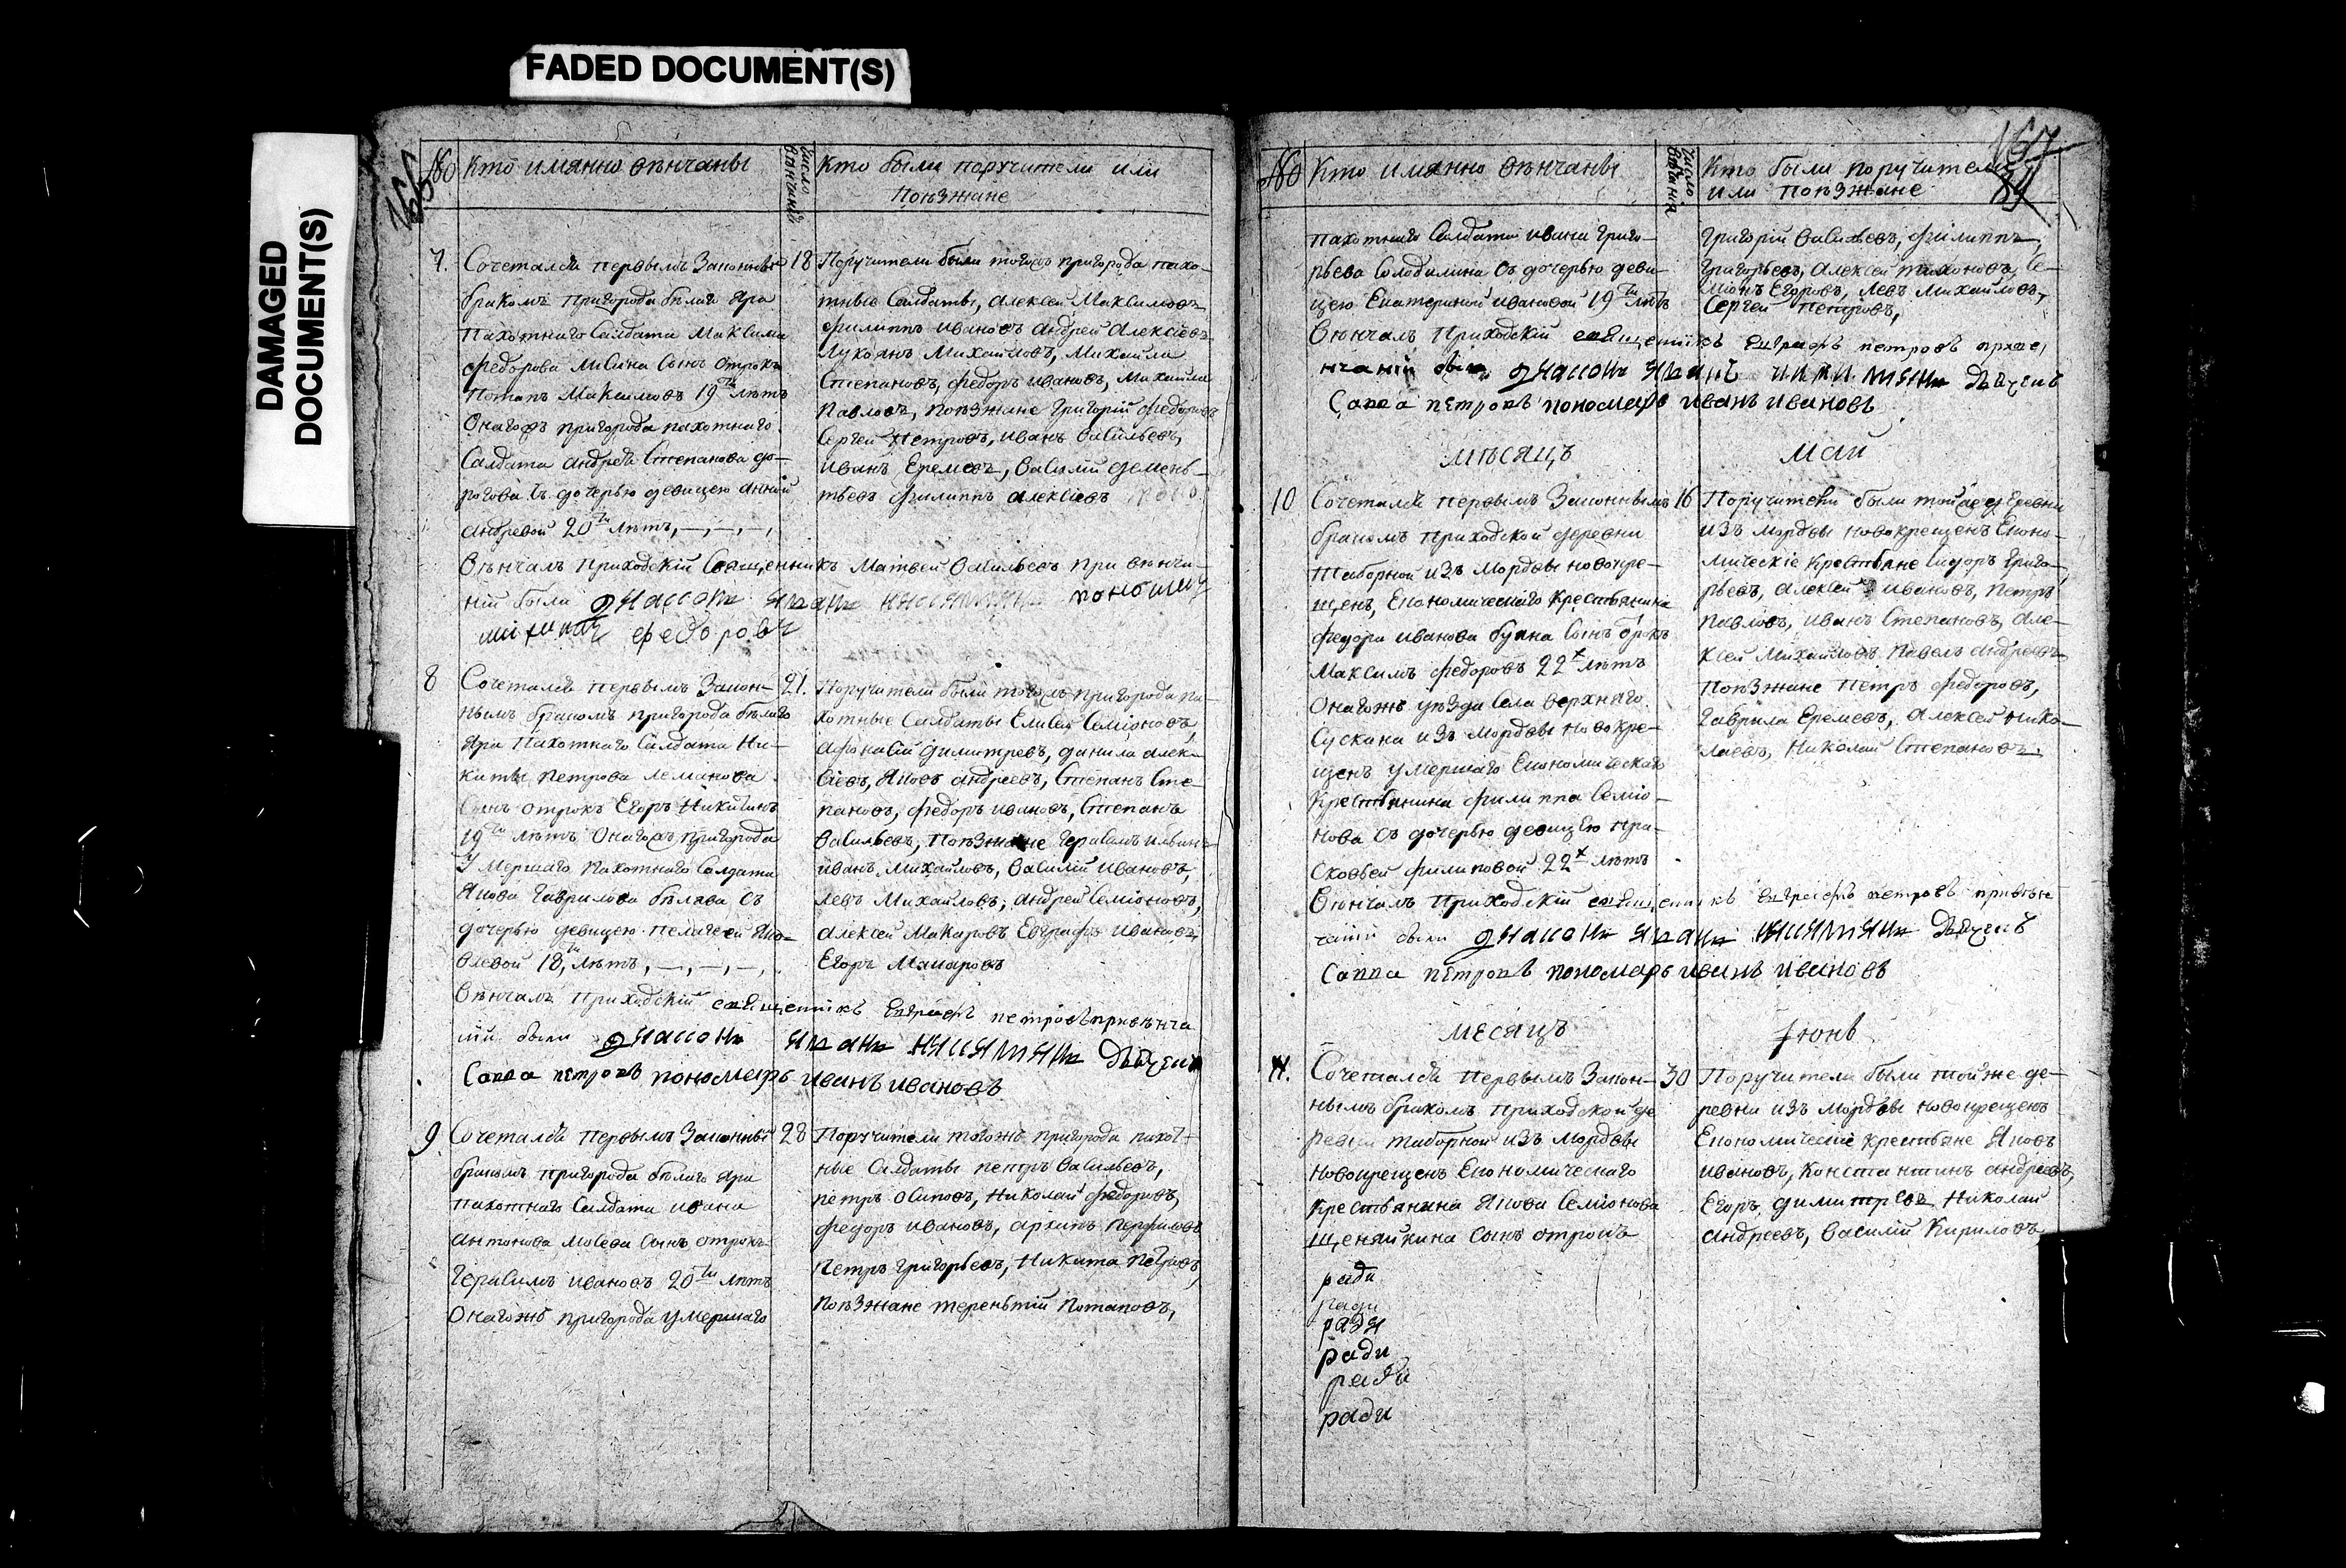 FADED DOCUMENT(S)
DAMAGED
DOCUMENT(S)
166
№
Кто имянно венчаны
число венчания
Кто были поручители или
поезжане
7.
Сочетался первымъ Законные
бракомъ пригорода белаго Яра
Пахотнаго Салдата Максима
федорова лисина Сынъ отрокъ
Потапъ Максимовъ 19ти летъ
Онагожъ пригорода пахотнаго
Салдата андрея Степанова до-
рогова съ дочерью девицею анной
андревой 20ти летъ,
18
Поручители были тогожъ пригорода пахо-
тные Салдаты, алексей Максимовъ
филиппъ ивановъ андрей алексиевъ
Лукоянъ Михайловъ, Михайла
Степановъ, федоръ ивановъ, Михайла
Павловъ, поезжане григорий федоровъ
Сергей Петровъ, иванъ васильевъ,
иванъ Еремеевъ, василий демень-
тьевъ филиппъ алексиевъ
Венчалъ приходский Священникъ Матвей васильевъ при венча-
нии были
федоровъ
8
Сочетался первымъ Закон-
нымъ бракомъ пригорода белаго
Яра Пахотнаго Салдата Ни-
киты петрова леманова
Сынъ отрокъ Егоръ Никитинъ
19ти летъ Онагожъ пригорода
Умершаго Пахотнаго Салдата
Якова гаврилова беляева съ
дочерью девицею пелагеей Яко-
влевой 18ти летъ,
21.
Поручители были тогожъ пригорода па-
хотные Салдаты Елисей Семионовъ
афонасий димитревъ, данила алек-
сиевъ, Яковъ андреевъ, Степанъ Сте-
пановъ, федоръ ивановъ, Степанъ
васильевъ, Поезжане герасимъ ильинъ
иванъ Михайловъ, василий ивановъ,
левъ Михайловъ, андрей Семионовъ,
алексей Макаровъ Евграфъ ивановъ
Егоръ Макаровъ
Венчалъ приходский священникъ Евграфъ петровъ при венча
нии были
Савва петровъ пономарь иванъ ивановъ
9.
Сочетался первымъ Законны
бракомъ пригорода белаго Яра
пахотнаго Салдата ивана
антонова мосева Сынъ отрокъ
герасимъ ивановъ 20ти летъ
Онагожъ пригорода умершаго
28
Поручители тогожъ пригорода пахот-
ные Салдаты петръ васильевъ,
петръ осиповъ, николай федоровъ,
федоръ ивановъ, архипъ перфиловъ
Петръ григорьевъ, Никита петровъ,
поезжане терентий потаповъ,
167
89
№
Кто имянно венчаны
число венчания
Кто были поручители
или поезжане
пахотнаго Салдата ивана григо-
рьева Солодилина съ дочерью деви-
цею Екатериной ивановой 19ти летъ
григорий васильевъ, филиппъ
григорьевъ, алексей тихоновъ, Се-
мионъ Егоровъ, левъ Михайловъ,
Сергей петровъ,
Венчалъ приходский священникъ Евграфъ петровъ
нчании были
Савва петровъ пономарь иванъ ивановъ
месяцъ
май
10
Сочетался первымъ Законнымъ
бракомъ приходской деревни
таборной изъ Мордвы новокре-
щенъ, Економическаго Крестьянина
федора иванова буяна Сынъ отрокъ
Максимъ федоровъ 22х летъ
Онагожъ уезда села верхняго
Сускана изъ Мордвы новокре-
щенъ умершаго Економическаго
Крестьянина филиппа Семио-
нова съ дочерью девицею пра-
сковьей филиповой 22х летъ
16
Поручители были тойже деревни
изъ мордвы новокрещенъ Еконо-
мические Крестьяне Сидоръ григо-
рьевъ, алексей ивановъ, петръ
павловъ, иванъ Степановъ, але-
ксей Михайловъ павелъ андреевъ
поезжане петръ федоровъ,
гаврила Еремеевъ, алексей нико-
лаевъ, николай Степановъ.
Венчалъ приходский священникъ Евграфъ петровъ при вен
чании были
Савва петровъ пономарь иванъ ивановъ
месяцъ
Июнь
11.
Сочетался первымъ Закон-
нымъ бракомъ приходской де
ревни таборной изъ мордвы
новокрещенъ Економическаго
Крестьянина Якова Семионова
щеняйкина Сынъ отрокъ
ради
ради
радя
ради
ради
ради
30
Поручители были тойже де-
ревни изъ мордвы новокрещенъ
Економические крестьяне Яковъ
ивановъ, Константинъ андреевъ,
Егоръ димитревъ Николай
андреевъ, василий Кириловъ,